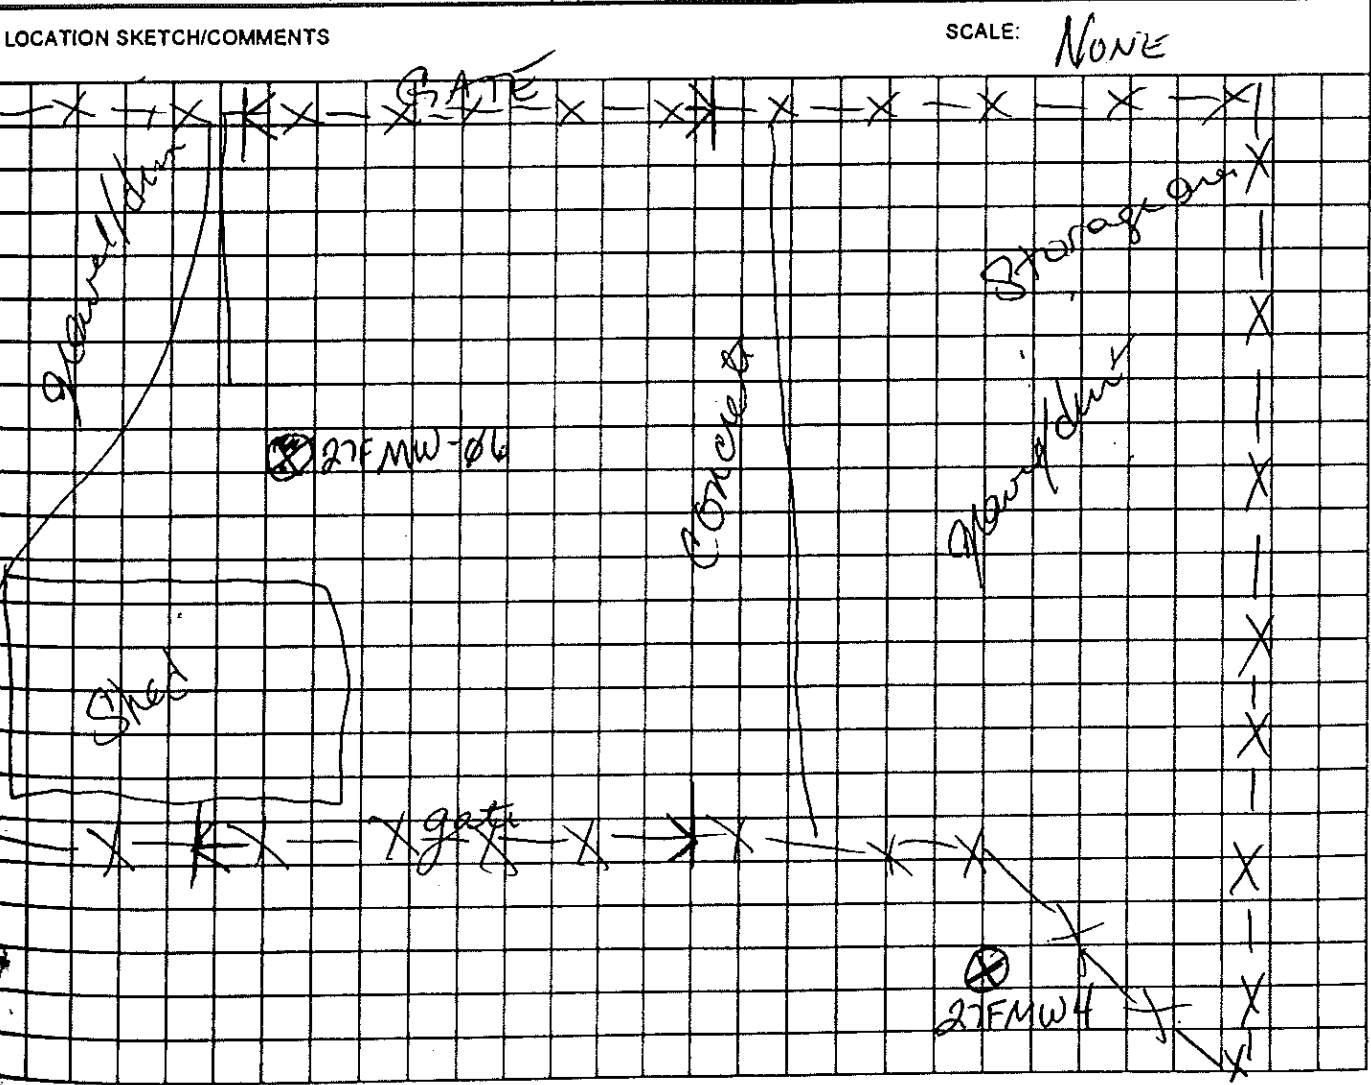 LOCATION SKETCH/COMMENTS
SCALE: NONE
GATE
gravel/dirt
Storage area
27FMW-06
Concrete
gravel/dirt
Shed
gate
27FMW4